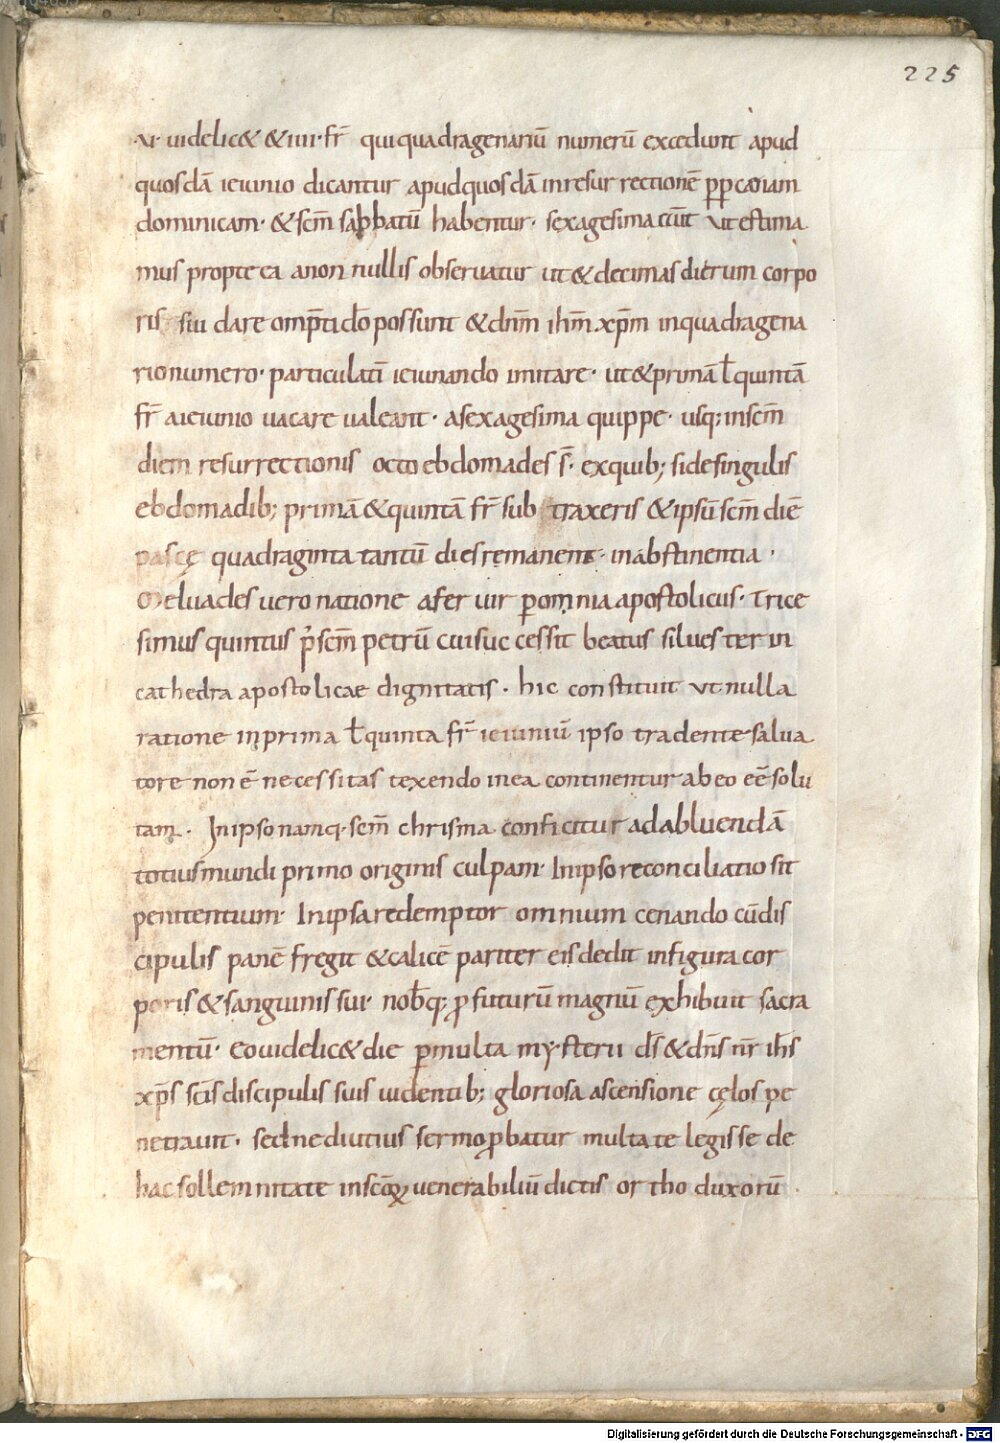 225
.vi. uidelic& & iiii. fr̄ qui quadragenariū numerū excedunt apud
quosdā ieiunio dicantur apud quosdā in resurrectionē ꝑꝑ causam
dominicam. & sc̄m sabbatū habentur. sexagesima
mus propterea a nonnullis obseruatur ut & decimas dierum corpo
ris sui dare omp̄ti dō possunt & dn̄m ihm̄ xp̄m in quadragena
rio numero. particulatī ieiunando imitare. ut & primā ł quintā
fr̄ a ieiunio uacare ualeant. a sexagesima quippe. usq; in sc̄m
diem resurrectionis octo ebdomades s̄. ex quib; si de singulis
ebdomadib; primā & quintā fr̄ subtraxeris & ipsū sc̄m diē
pascę quadraginta tantū dies remanent. in abstinentia.
Meluades uero natione afer uir ꝑ omnia apostolicus. trice
simus quintus p̄ sc̄m petrū cui successit beatus siluester in
cathedra apostolicae dignitatis. hic constituit ut nulla
ratione in prima ł quinta fr̄ ieiuniū ipso tradente salua
tore non ē necessitas texendo in ea continentur ab eo eē̄ solu
tam. In ipso namq. sc̄m chrisma conficitur ad abluendā
totius mundi primo originis culpam. In ipso reconciliatio sit
penitentium. In ipsa redemptor omnium cenando cū dis
cipulis panē fregit & calicē pariter eis dedit in figura cor
poris & sanguinis sui. nob̄q; ꝓfuturū magnū exhibuit sacra
mentū. Eo uidelic& die ꝑ multa mysterii ds̄ & dn̄s nr̄ ihs̄
xp̄s sc̄is discipulis suis uidentib; gloriosa ascensione cęlos pe
netrauit. sed ne diutius sermo ꝓbatur multa te legisse de
hac sollemnitate in sc̄oꝝ uenerabiliū dictis orthoduxorū
Digitalisierung gefördert durch die Deutsche Forschungsgemeinschaft - DFG